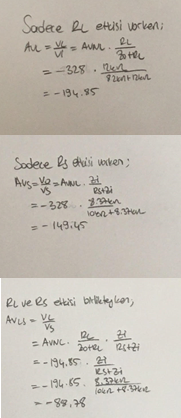 Sadece RL etkisi varken;
AVL = VL/Vi = AVNL . RL/Zo+RL
= -328 . 12kΩ/8.2kΩ+12kΩ
= -194.85
Sadece Rs etkisi varken;
AVS = Vo/Vs = AVNL . Zi/Rs+Zi
= -328 . 8.37kΩ/10kΩ+8.37kΩ
= -149.45
RL ve Rs etkisi birlikteyken,
AVLS = VL/Vs
= AVNL . RL/Zo+RL . Zi/Rs+Zi
= -194.85 . Zi/Rs+Zi
= -194.85 . 8.37kΩ/10kΩ+8.37kΩ
= -88,78